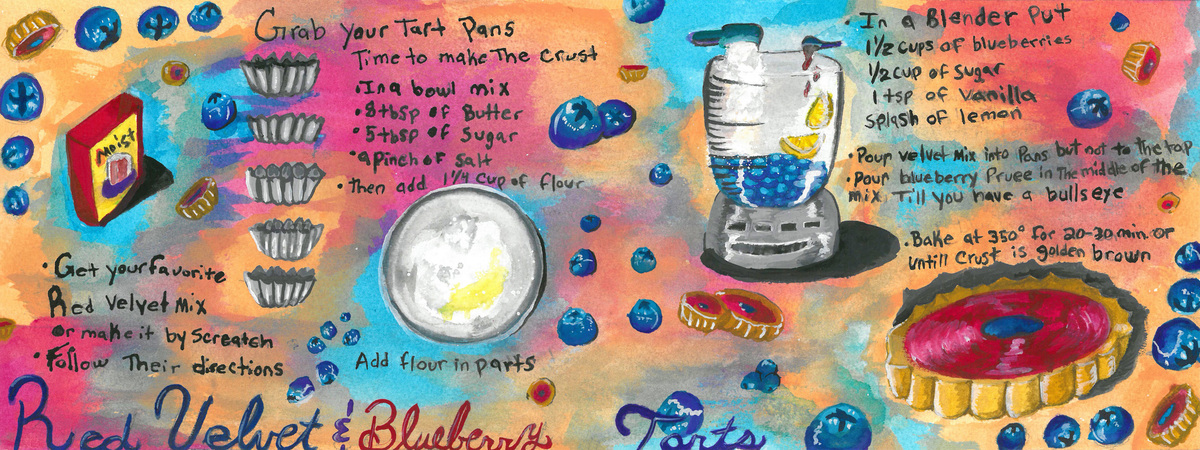 Moist
• Get your favorite
Red Velvet Mix
or make it by Screatch
• Follow Their directions
Grab your Tart Pans
Time to make The Crust
• In a bowl mix
• 8 tbsp of Butter
• 5 tbsp of Sugar
• a pinch of Salt
• then add 1 1/4 cup of flour
Add flour in parts
• In a Blender Put
1 1/2 cups of blueberries
1/2 cup of Sugar
1 tsp of Vanilla
splash of lemon
• Pour velvet Mix into Pans but not to the top
• Pour blueberry Pruee in The middle of the
mix, Till you have a bullseye
• Bake at 350° for 20-30 min. or
untill Crust is golden brown
Red Velvet & Blueberry Tarts